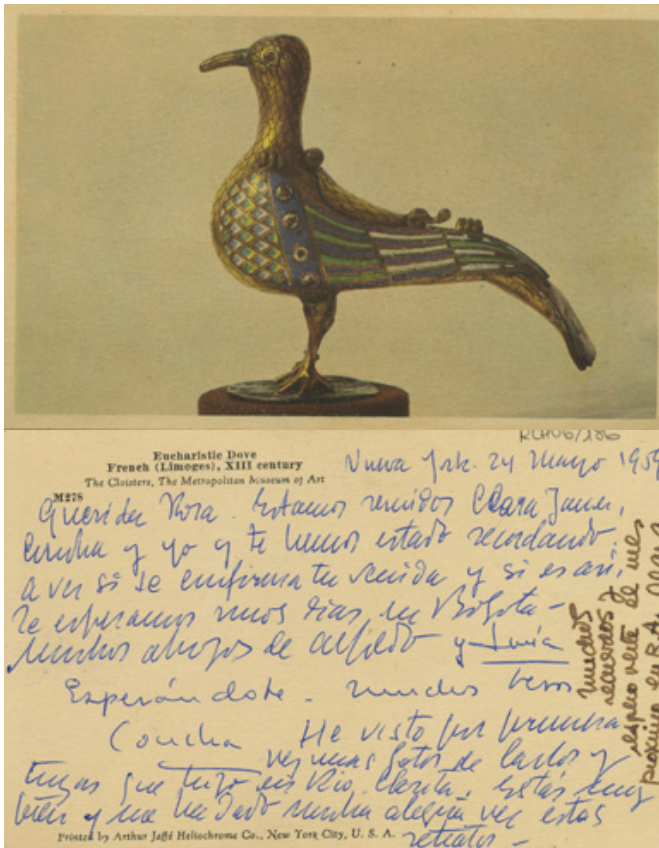 Eucharistic Dove
French (Limoges), XIII century
The Cloisters, The Metropolitan Museum of Art
M278
Nueva York. 24 Mayo 1959
Querida Rosa. Estamos reunidos Clara Janés,
Concha y yo y te hemos estado recordando;
a ver si se confirma tu venida y si es así,
te esperamos unos días en Bogotá -
Muchos abrazos de Alfredo y
Esperándote - muchos besos
Concha He visto por primera
vez unas fotos de Carlos y
tuyas que trajo de Rio. Estás muy
bien y me ha dado mucha alegría ver estos
retratos -
muchos
recuerdos y
espero verte el mes
próximo en B.A.
Printed by Arthur Jaffé Heliochrome Co., New York City, U. S. A.